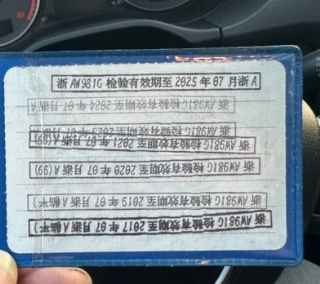 浙 AW981G 检验有效期至 2025 年 07 月浙 A
浙 AW981G 检验有效期至 2024 年 07 月浙 A
浙 AW981G 检验有效期至 2023 年 07 月浙 A
浙 AW981G 检验有效期至 2021 年 07 月浙 A (99)
浙 AW981G 检验有效期至 2020 年 07 月浙 A (99)
浙 AW981G 检验有效期至 2019 年 07 月浙 A (临平)
浙 AW981G 检验有效期至 2017 年 07 月浙 A (临平)